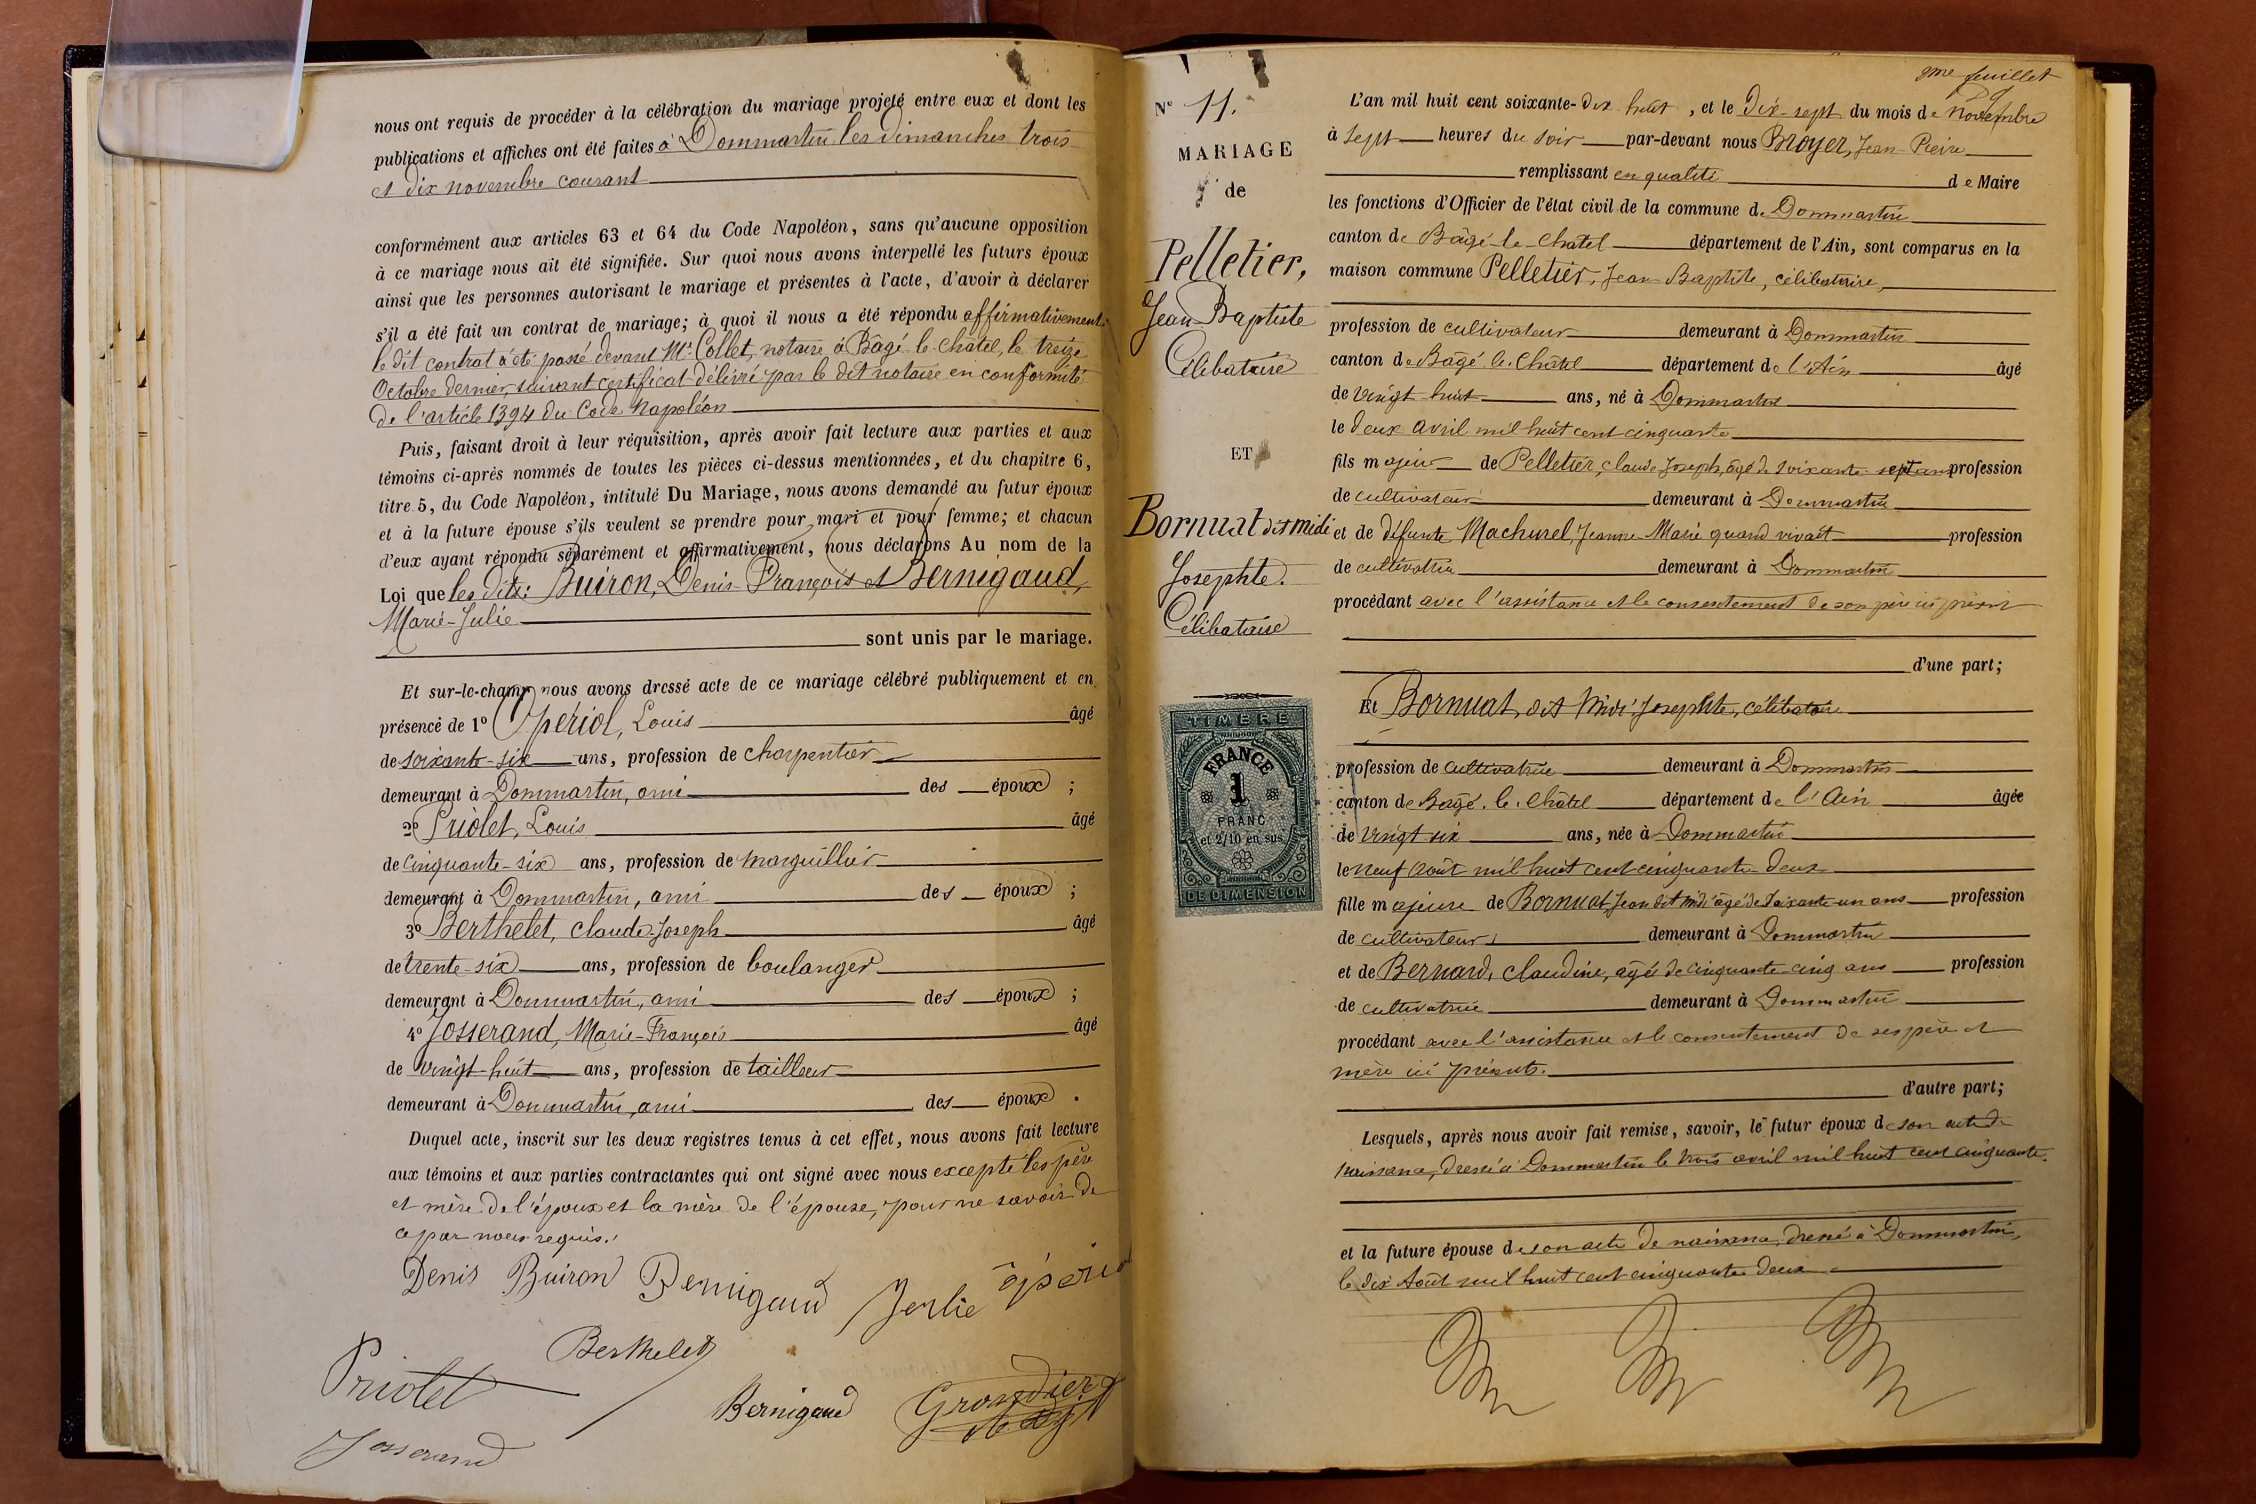 nous ont requis de procéder à la célébration du mariage projeté entre eux et dont les
publications et affiches ont été faites à Dommartin les dimanches trois
et dix novembre courant
conformément aux articles 63 et 64 du Code Napoléon, sans qu'aucune opposition
à ce mariage nous ait été signifiée. Sur quoi nous avons interpellé les futurs époux
ainsi que les personnes autorisant le mariage et présentes à l'acte, d'avoir à déclarer
s'il a été fait un contrat de mariage; à quoi il nous a été répondu affirmativement
le dit contrat a été passé devant Me Collet, notaire à Bâgé-le-Châtel, le treize
Octobre dernier, suivant certificat délivré par le dit notaire en conformité
de l'article 1394 du Code Napoléon
Puis, faisant droit à leur réquisition, après avoir fait lecture aux parties et aux
témoins ci-après nommés de toutes les pièces ci-dessus mentionnées, et du chapitre 6,
titre 5, du Code Napoléon, intitulé Du Mariage, nous avons demandé au futur époux
et à la future épouse s'ils veulent se prendre pour mari et pour femme; et chacun
d'eux ayant répondu séparément et affirmativement, nous déclarons Au nom de la
Loi que les dits: Buiron, Denis-François et Bernigaud,
Marie-Julie
sont unis par le mariage.
Et sur-le-champ nous avons dressé acte de ce mariage célébré publiquement et en
présence de 1o Opériol, Louis âgé
de soixante-six ans, profession de charpentier
demeurant à Dommartin, ami des époux ;
2o Priolet, Louis âgé
de cinquante-six ans, profession de marguillier
demeurant à Dommartin, ami des époux ;
3o Berthelet, claude-Joseph âgé
de trente-six ans, profession de boulanger
demeurant à Dommartin, ami des époux ;
4o Josserand, Marie-François âgé
de vingt-huit ans, profession de tailleur
demeurant à Dommartin, ami des époux .
Duquel acte, inscrit sur les deux registres tenus à cet effet, nous avons fait lecture
aux témoins et aux parties contractantes qui ont signé avec nous excepté les père
et mère de l'époux et la mère de l'épouse, pour ne savoir de
ce par nous requis.
Denis Buiron Bernigaud Julie
Berthelet
Priolet
Bernigaud
Josserand
9me feuillet
No 11.
MARIAGE
de
Pelletier,
Jean Baptiste
Célibataire
ET
Bornuat dit midi
Josephte.
Célibataire
TIMBRE
FRANCE
1
FRANC
et 2/10 en sus
DE DIMENSION
L'an mil huit cent soixante-dix huit, et le Dix-sept du mois de Novembre
à sept heures du soir par-devant nous Broyer, Jean-Pierre
remplissant en qualité de Maire
les fonctions d'Officier de l'état civil de la commune de Dommartin
canton de Bâgé-le-Chatel département de l'Ain, sont comparus en la
maison commune Pelletier, Jean Baptiste, célibataire,
profession de cultivateur demeurant à Dommartin
canton de Bagé le Châtel département de l'Ain âgé
de vingt-huit ans, né à Dommartin
le deux avril mil huit cent cinquante
fils majeur de Pelletier, claude Joseph, âgé de soixante-sept ans profession
de cultivateur demeurant à Dommartin
et de défunte Machurel, Jeanne Marie quand vivait profession
de cultivatrice demeurant à Dommartin
procédant avec l'assistance et le consentement de son père ici présent
d'une part;
Et Bornuat, dit Midi Josephte, célibataire
profession de cultivatrice demeurant à Dommartin
canton de Bagé-le-Châtel département de l'Ain âgée
de vingt six ans, née à Dommartin
le neuf Août mil huit cent cinquante-deux
fille majeure de Bornuat Jean dit midi âgé de soixante-un ans profession
de cultivateur demeurant à Dommartin
et de Bernard, claudine, agée de cinquante-cinq ans profession
de cultivatrice demeurant à Dommartin
procédant avec l'assistance et le consentement de ses père et
mère ici présents.
d'autre part;
Lesquels, après nous avoir fait remise, savoir, le futur époux de son acte de
naissance, dressé à Dommartin le trois avril mil huit cent cinquante.
et la future épouse de son acte de naissance, dressé à Dommartin,
le dix Août mil huit cent cinquante-deux